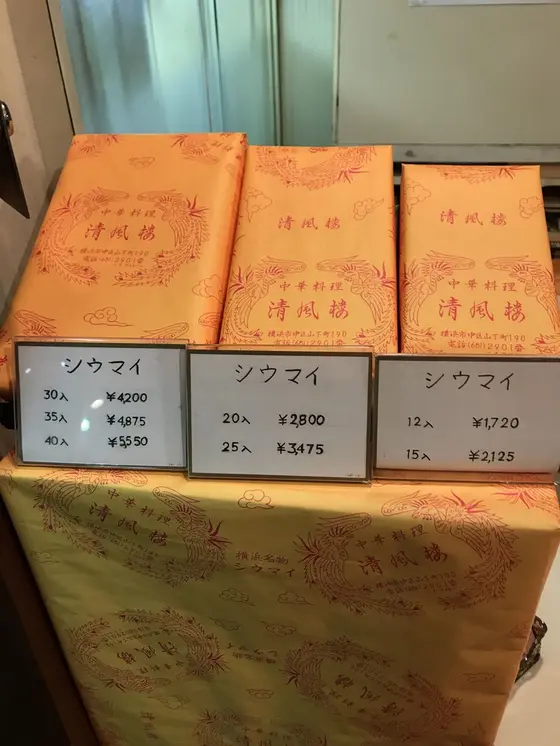 中華料理
清風楼
横浜市中区山下町190
電話(681)2901番
清風楼
中華料理
清風楼
横浜市中区山下町190
電話(681)2901番
清風楼
中華料理
清風楼
横浜市中区山下町190
電話(681)2901番
シウマイ
30入 ¥4,200
35入 ¥4,875
40入 ¥5,550
シウマイ
20入 ¥2,800
25入 ¥3,475
シウマイ
12入 ¥1,720
15入 ¥2,125
中華料理
清風楼
横浜名物
シウマイ
中華料理
清風楼
清風楼